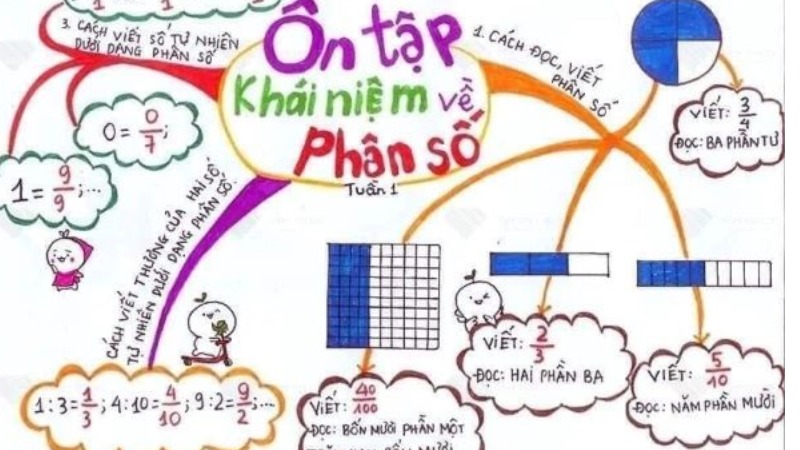 Ôn tập
Khái niệm về
Phân số
Tuần 1
1. CÁCH ĐỌC, VIẾT
PHÂN SỐ
VIẾT: 3/4
ĐỌC: BA PHẦN TƯ
VIẾT: 2/3
ĐỌC: HAI PHẦN BA
VIẾT: 5/10
ĐỌC: NĂM PHẦN MƯỜI
VIẾT: 40/100
ĐỌC: BỐN MƯƠI PHẦN MỘT
CÁCH VIẾT THƯƠNG CỦA HAI SỐ
TỰ NHIÊN DƯỚI DẠNG PHÂN SỐ.
1:3=1/3; 4:10=4/10; 9:2=9/2;...
3. CÁCH VIẾT SỐ TỰ NHIÊN
DƯỚI DẠNG PHÂN SỐ
0=0/7;
1=9/9;...